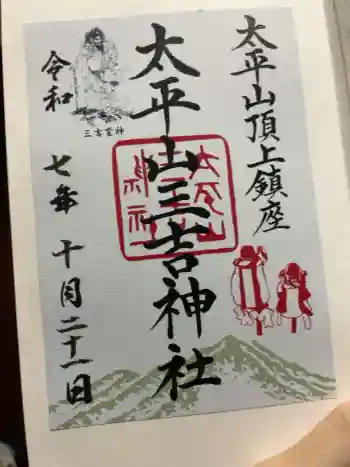 太平山頂上鎮座
太平山三吉神社
三吉霊神
令和七年十月二十一日